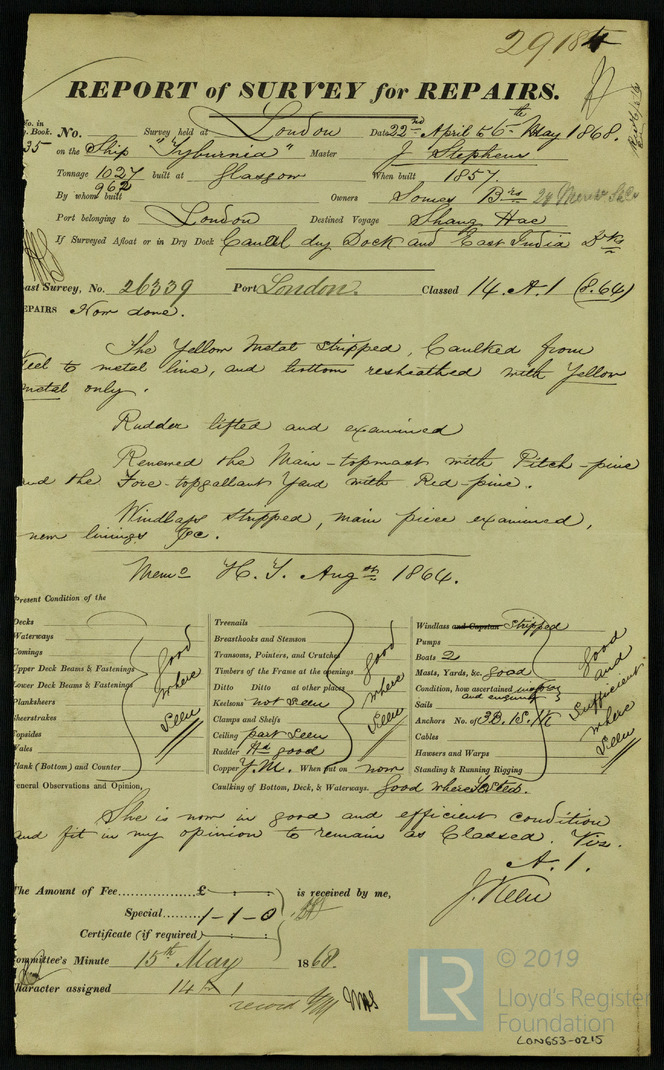 29184
REPORT of SURVEY for REPAIRS.
No. in
Book. No. Survey held at London Date 22nd April & 6th May 1868.
35 on the Ship "Tyburnia" Master J. Stephens
Tonnage 1027 built at Glasgow When built 1857
962
By whom built Owners Somes Brs
Port belonging to London Destined Voyage Shang Hae
If Surveyed Afloat or in Dry Dock Dry Dock and East India Dks
ast Survey, No. 26339 Port London. Classed 14. A. 1 (8.64)
EPAIRS Now done.
The Yellow Metal stripped, Caulked from
Keel to metal line, and bottom resheathed with Yellow
metal only.
Rudder lifted and examined
Renewed the Main-topmast with Pitch-pine
and the Fore-topgallant Yard with Red-pine.
Windlass stripped, main piece examined,
new linings &c.
Memo H. T. Augst 1864.
Present Condition of the
Decks
Waterways
Comings
Upper Deck Beams & Fastenings
Lower Deck Beams & Fastenings
Planksheers
Sheerstrakes
Topsides
Wales
Plank (Bottom) and Counter
good where seen
Treenails
Breasthooks and Stemson
Transoms, Pointers, and Crutches
Timbers of the Frame at the openings
Ditto Ditto at other places
Keelsons not seen
Clamps and Shelfs
Ceiling part seen
Rudder good
Copper Y.M. When put on now
good where seen
Windlass and Capstan Stripped
Pumps
Boats 2
Masts, Yards, &c. good
Condition, how ascertained
Sails
Anchors No. of 3B. 1S. 1K
Cables
Hawsers and Warps
Standing & Running Rigging
good and sufficient where seen
eneral Observations and Opinion, Caulking of Bottom, Deck, & Waterways. Good where tested.
She is now in good and efficient condition
and fit in my opinion to remain as Classed. Viz.
A. 1.
J. Keen
The Amount of Fee £ is received by me,
Special 1-1-0
Certificate (if required)
ommittee's Minute 15th May 1868.
haracter assigned 14 A 1
record YM
LR
© 2019
Lloyd's Register
Foundation
LON653-0215